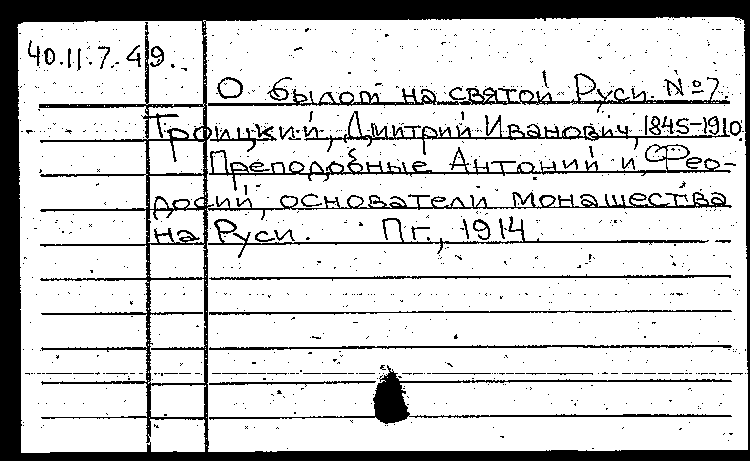 40.11.7.49.
О былом на святой Руси. №7.
Троицкий, Дмитрий Иванович, 1845-1910
Преподобные Антоний и Фео-
досий, основатели монашества
на Руси. Пг., 1914.